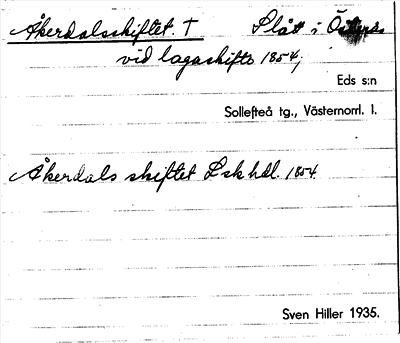 Åkerdalsskiftet. † Slått i Österås
vid lagaskifte 1854;
Eds s:n
Sollefteå tg., Västernorrl. l.
Åkerdals skiftet Lskhdl. 1854
Sven Hiller 1935.